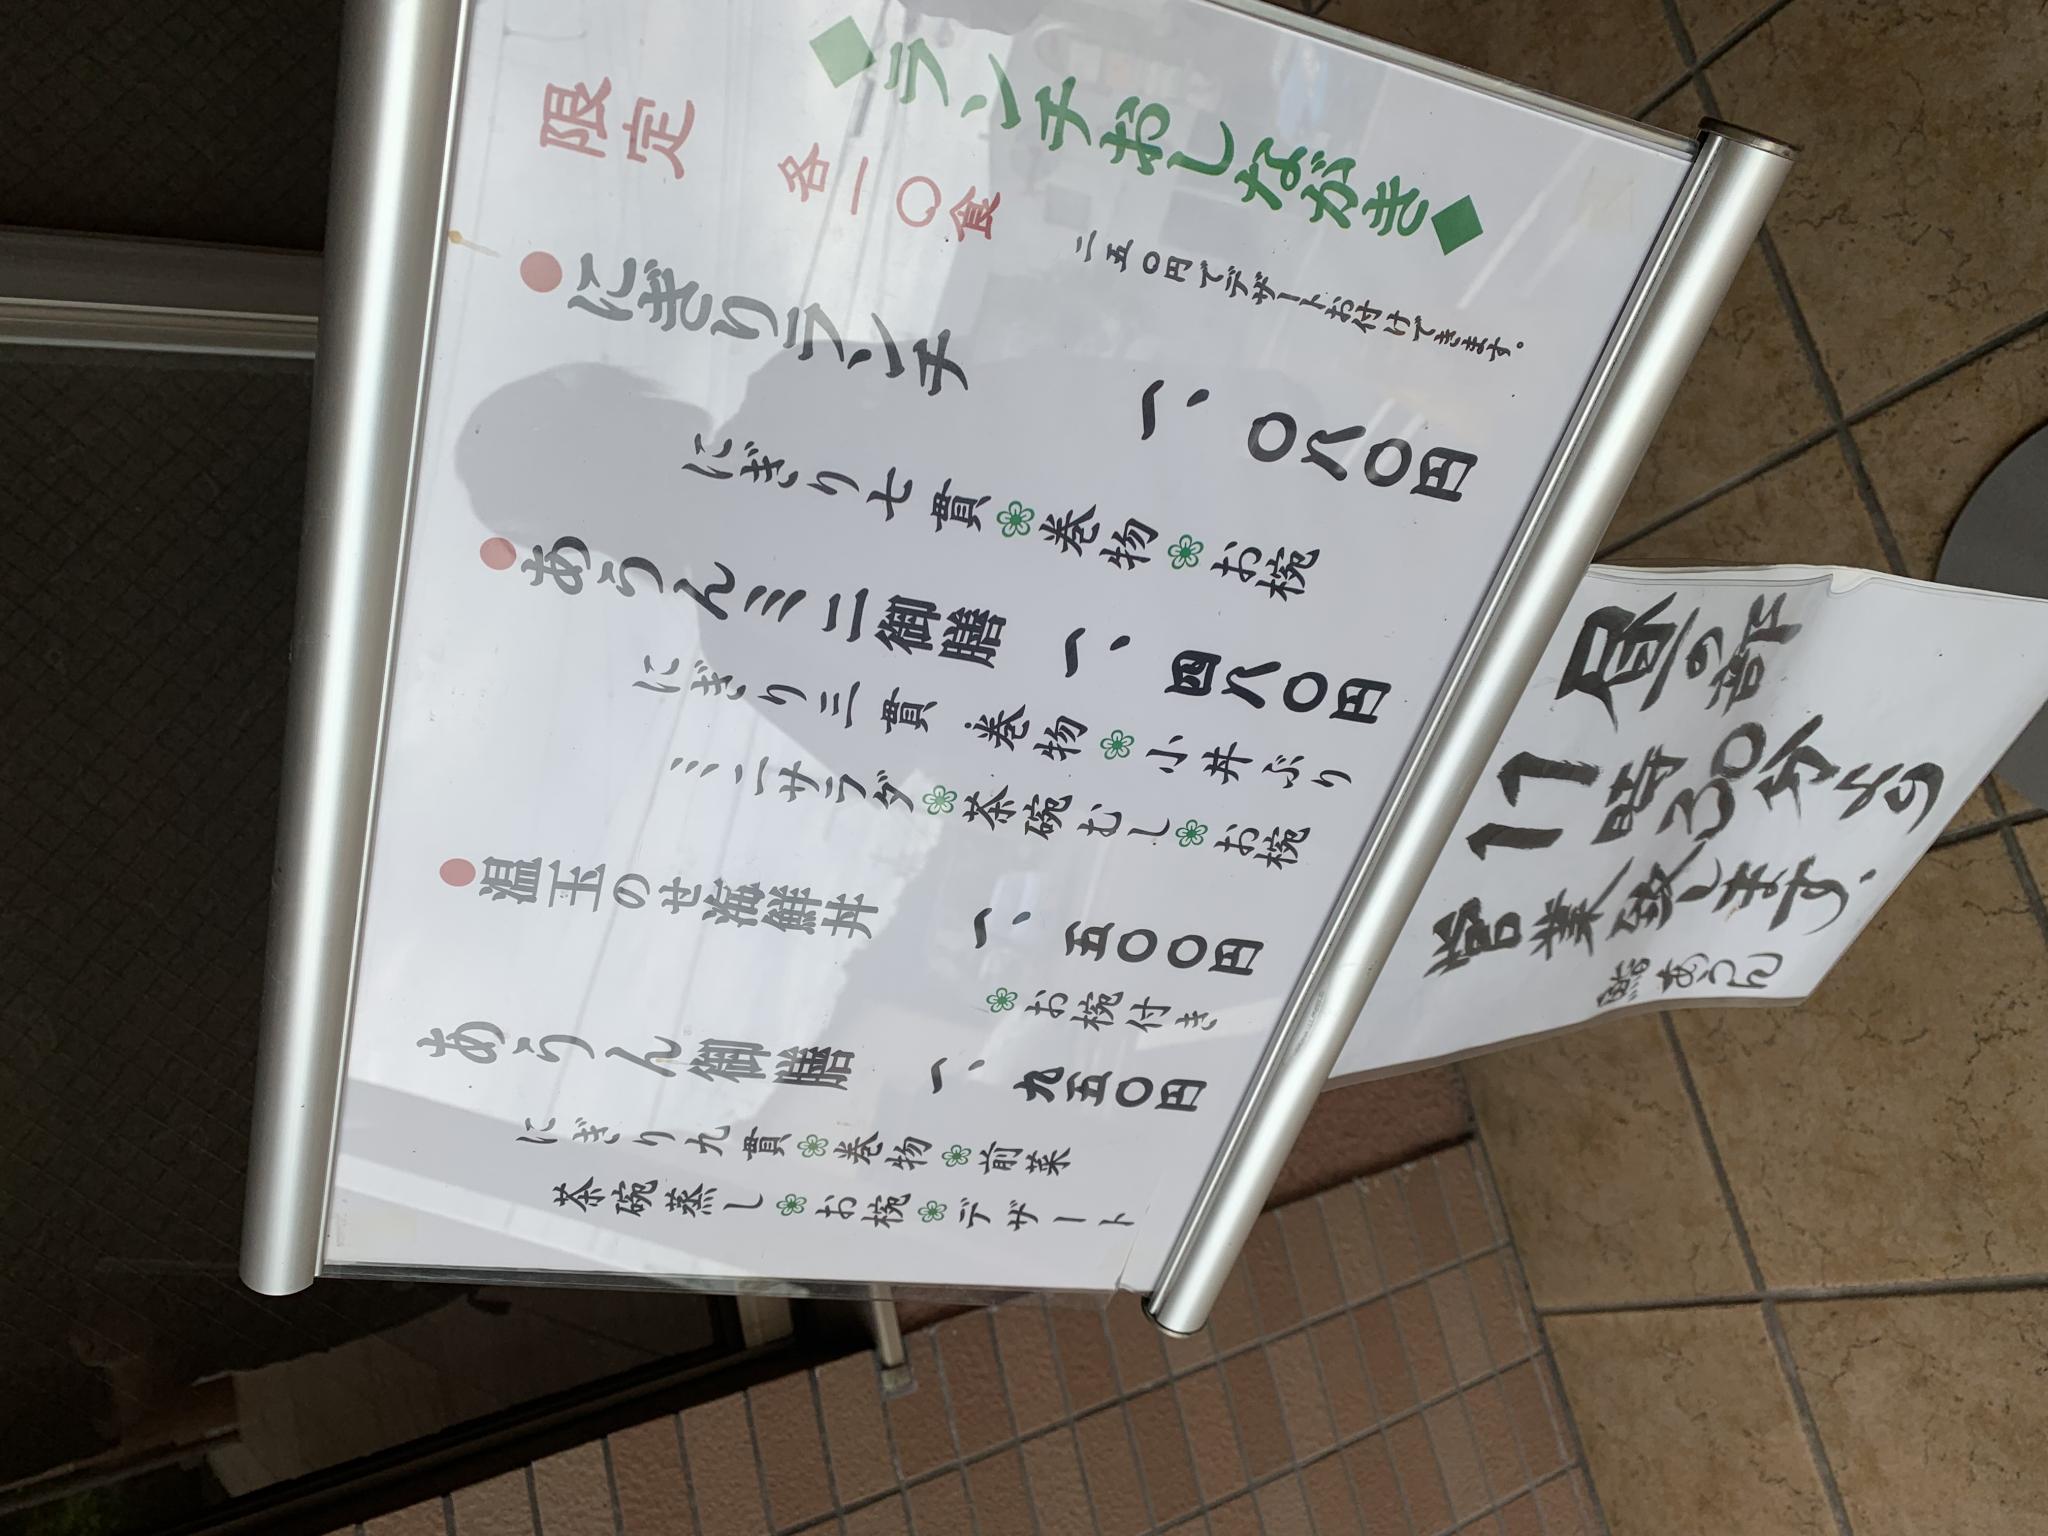 ◆ランチおしながき◆
限定 各一〇食
二五〇円でデザートお付けできます。
●にぎりランチ 一、〇八〇円
にぎり七貫 巻物 お椀
●あうんミニ御膳 一、四八〇円
にぎり三貫 巻物 小丼ぶり
ミニサラダ 茶碗むし お椀
●温玉のせ海鮮丼 一、五〇〇円
お椀付き
あうん御膳 一、九五〇円
にぎり九貫 巻物 前菜
茶碗蒸し お椀 デザート
昼の部
11時30分より
営業致します、
鮨あうん